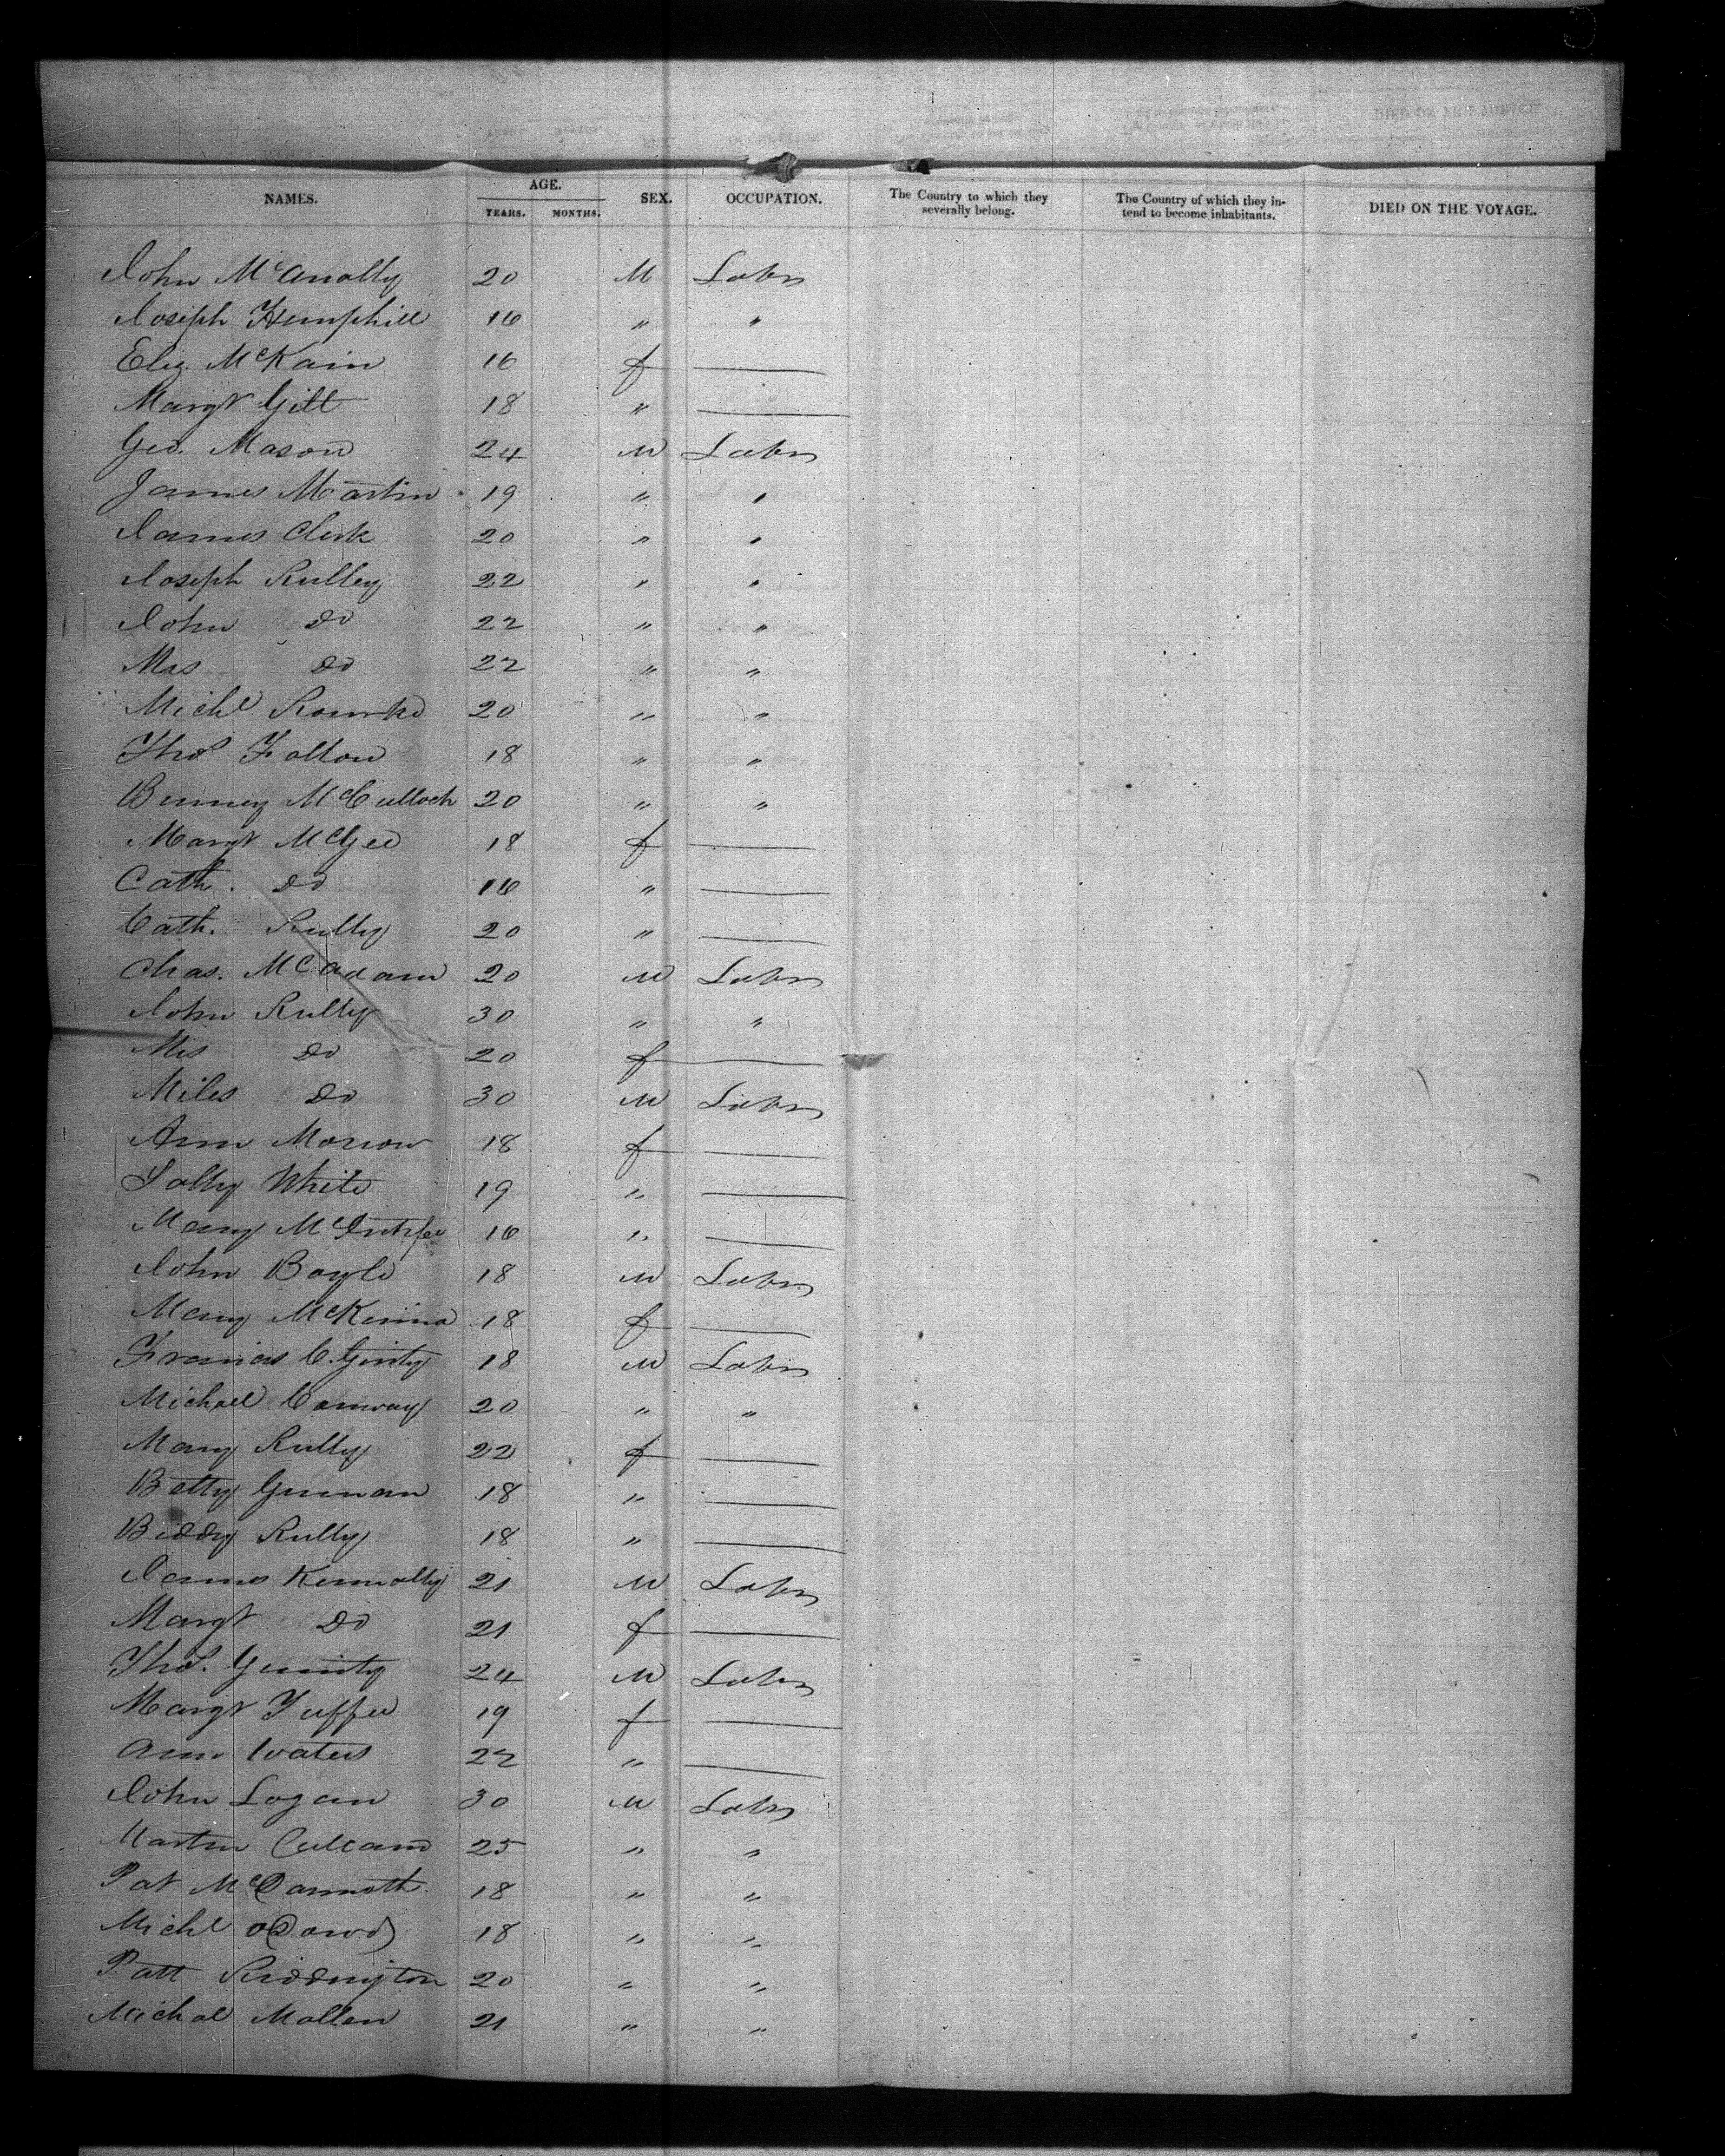 NAMES. AGE. YEARS. MONTHS. SEX. OCCUPATION. The Country to which they severally belong. The Country of which they intend to become inhabitants. DIED ON THE VOYAGE.
John McAnally 20 M Labr
Joseph Hemphill 16 " "
Eliz. McKain 16 f —
Margt Gill 18 " —
Geo. Mason 24 M Labr
James Martin 19 " "
James Clerk 20 " "
Joseph Rulley 22 " "
John Do 22 " "
Mrs Do 22 " "
Michl Rourke 20 " "
Thos Fallon 18 " "
Benney McCulloch 20 " "
Margt McGee 18 f —
Cath. Do 16 " —
Cath. Rully 20 " —
Chas. McAdam 20 M Labr
John Rully 30 " "
Mrs Do 20 f —
Miles Do 30 M Labr
Ann Morrow 18 f —
Sally White 19 " —
Mary 16 " —
John Boyle 18 M Labr
Mary McKinna 18 f —
Francis C. Ginty 18 M Labr
Michael Conway 20 " "
Mary Rully 22 f —
Betty 18 " —
Biddy Rully 18 " —
James Kennally 21 M Labr
Margt Do 21 f —
Thos. 24 M Labr
Margt 19 f —
Ann Waters 22 " —
John Logan 30 M Labr
Martin 25 " "
Pat McDarmoth 18 " "
Michl oDowd 18 " "
Patt Riddington 20 " "
Michal Mallen 21 " "